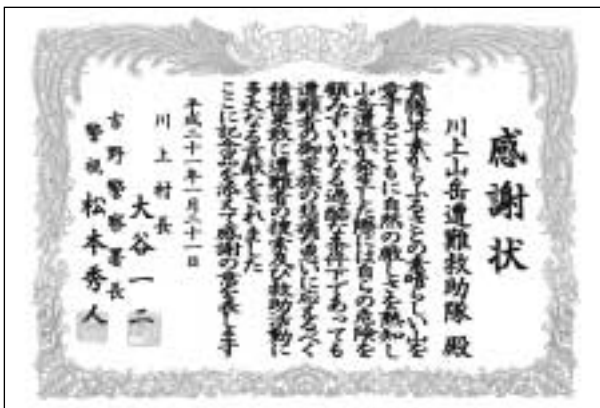 感謝状
川上山岳遭難救助隊 殿
貴隊は平素からふるさとの素晴らしい山を
愛するとともに自然の厳しさを熟知し
山岳遭難が発生した際には自らの危険を
顧みずいかなる過酷な条件下であっても
遭難者の御家族の悲痛な思いに応えるべく
積極果敢に遭難者の捜索及び救助活動に
多大なる貢献をされました
ここに記念品を添えて感謝の意を表します
平成二十一年一月三十一日
川上村長
大谷一二
吉野警察署長
警視 松本秀人